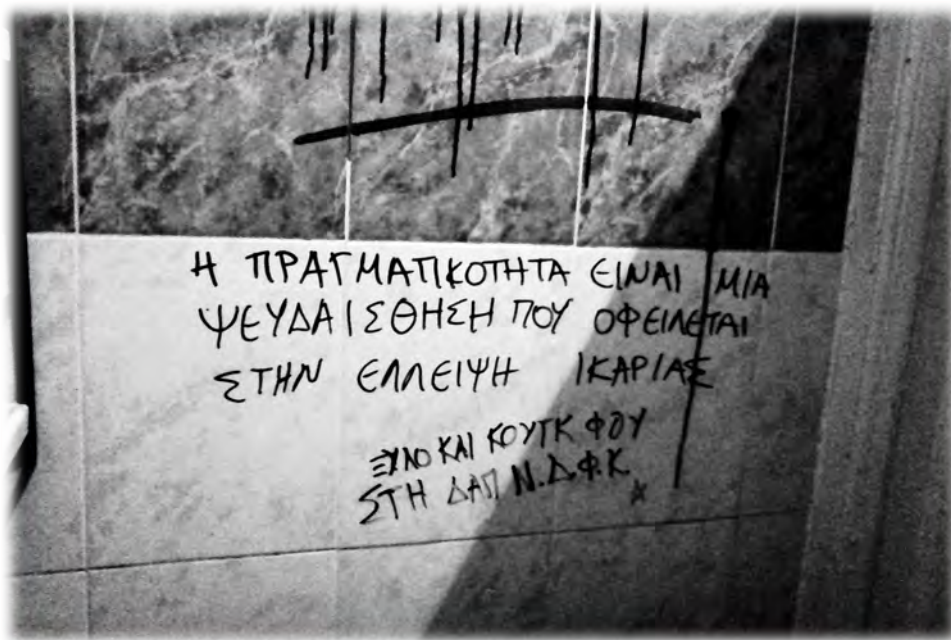 Η ΠΡΑΓΜΑΤΙΚΟΤΗΤΑ ΕΙΝΑΙ ΜΙΑ
ΨΕΥΔΑΙΣΘΗΣΗ ΠΟΥ ΟΦΕΙΛΕΤΑΙ
ΣΤΗΝ ΕΛΛΕΙΨΗ ΙΚΑΡΙΑΣ
ΞΥΛΟ ΚΑΙ ΚΟΥΓΚ ΦΟΥ
ΣΤΗ ΔΑΠ Ν.Δ.Φ.Κ.